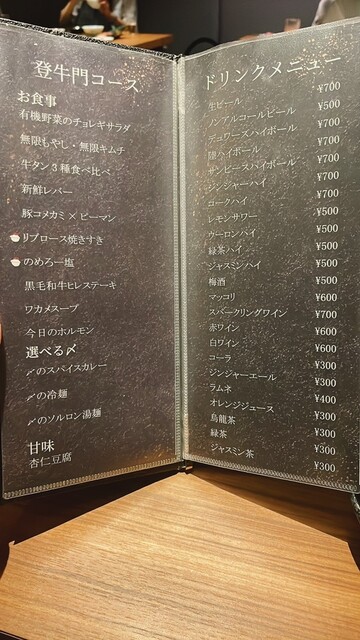 登牛門コース
お食事
有機野菜のチョレギサラダ
無限もやし・無限キムチ
牛タン3種食べ比べ
新鮮レバー
豚コメカミ×ピーマン
リブロース焼きすき
のめろー塩
黒毛和牛ヒレステーキ
ワカメスープ
今日のホルモン
選べる〆
〆のスパイスカレー
〆の冷麺
〆のソルロン湯麺
甘味
杏仁豆腐
ドリンクメニュー
生ビール ¥700
ノンアルコールビール ¥500
デュワーズハイボール ¥700
陸ハイボール ¥700
サンピースハイボール ¥700
ジンジャーハイ ¥700
コークハイ ¥700
レモンサワー ¥500
ウーロンハイ ¥500
緑茶ハイ ¥500
ジャスミンハイ ¥500
梅酒 ¥500
マッコリ ¥600
スパークリングワイン ¥700
赤ワイン ¥600
白ワイン ¥600
コーラ ¥300
ジンジャーエール ¥300
ラムネ ¥400
オレンジジュース ¥300
烏龍茶 ¥300
緑茶 ¥300
ジャスミン茶 ¥300